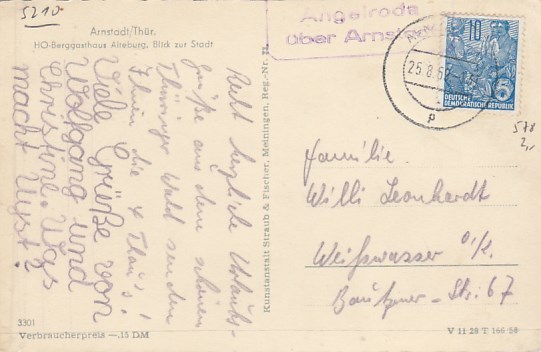 5210
Arnstadt/Thür.
HO-Berggasthaus Alteburg, Blick zur Stadt
Angelroda
über Arnstadt
25.8.6
p
10
DEUTSCHE
DEMOKRATISCHE REPUBLIK
578
2,-
Recht herzliche Urlaubs-
grüße aus dem schönen
Thüringer Wald senden
Ihnen die 4
Viele Grüße von
Wolfgang und
Christine. Was
macht
Kunstanstalt Straub & Fischer, Meiningen, Reg.-Nr.
Familie
Willi Leonhardt
Weißwasser O/L.
Bautzner-Str. 67
3301
Verbraucherpreis -.15 DM
V 11 28 T 166 58